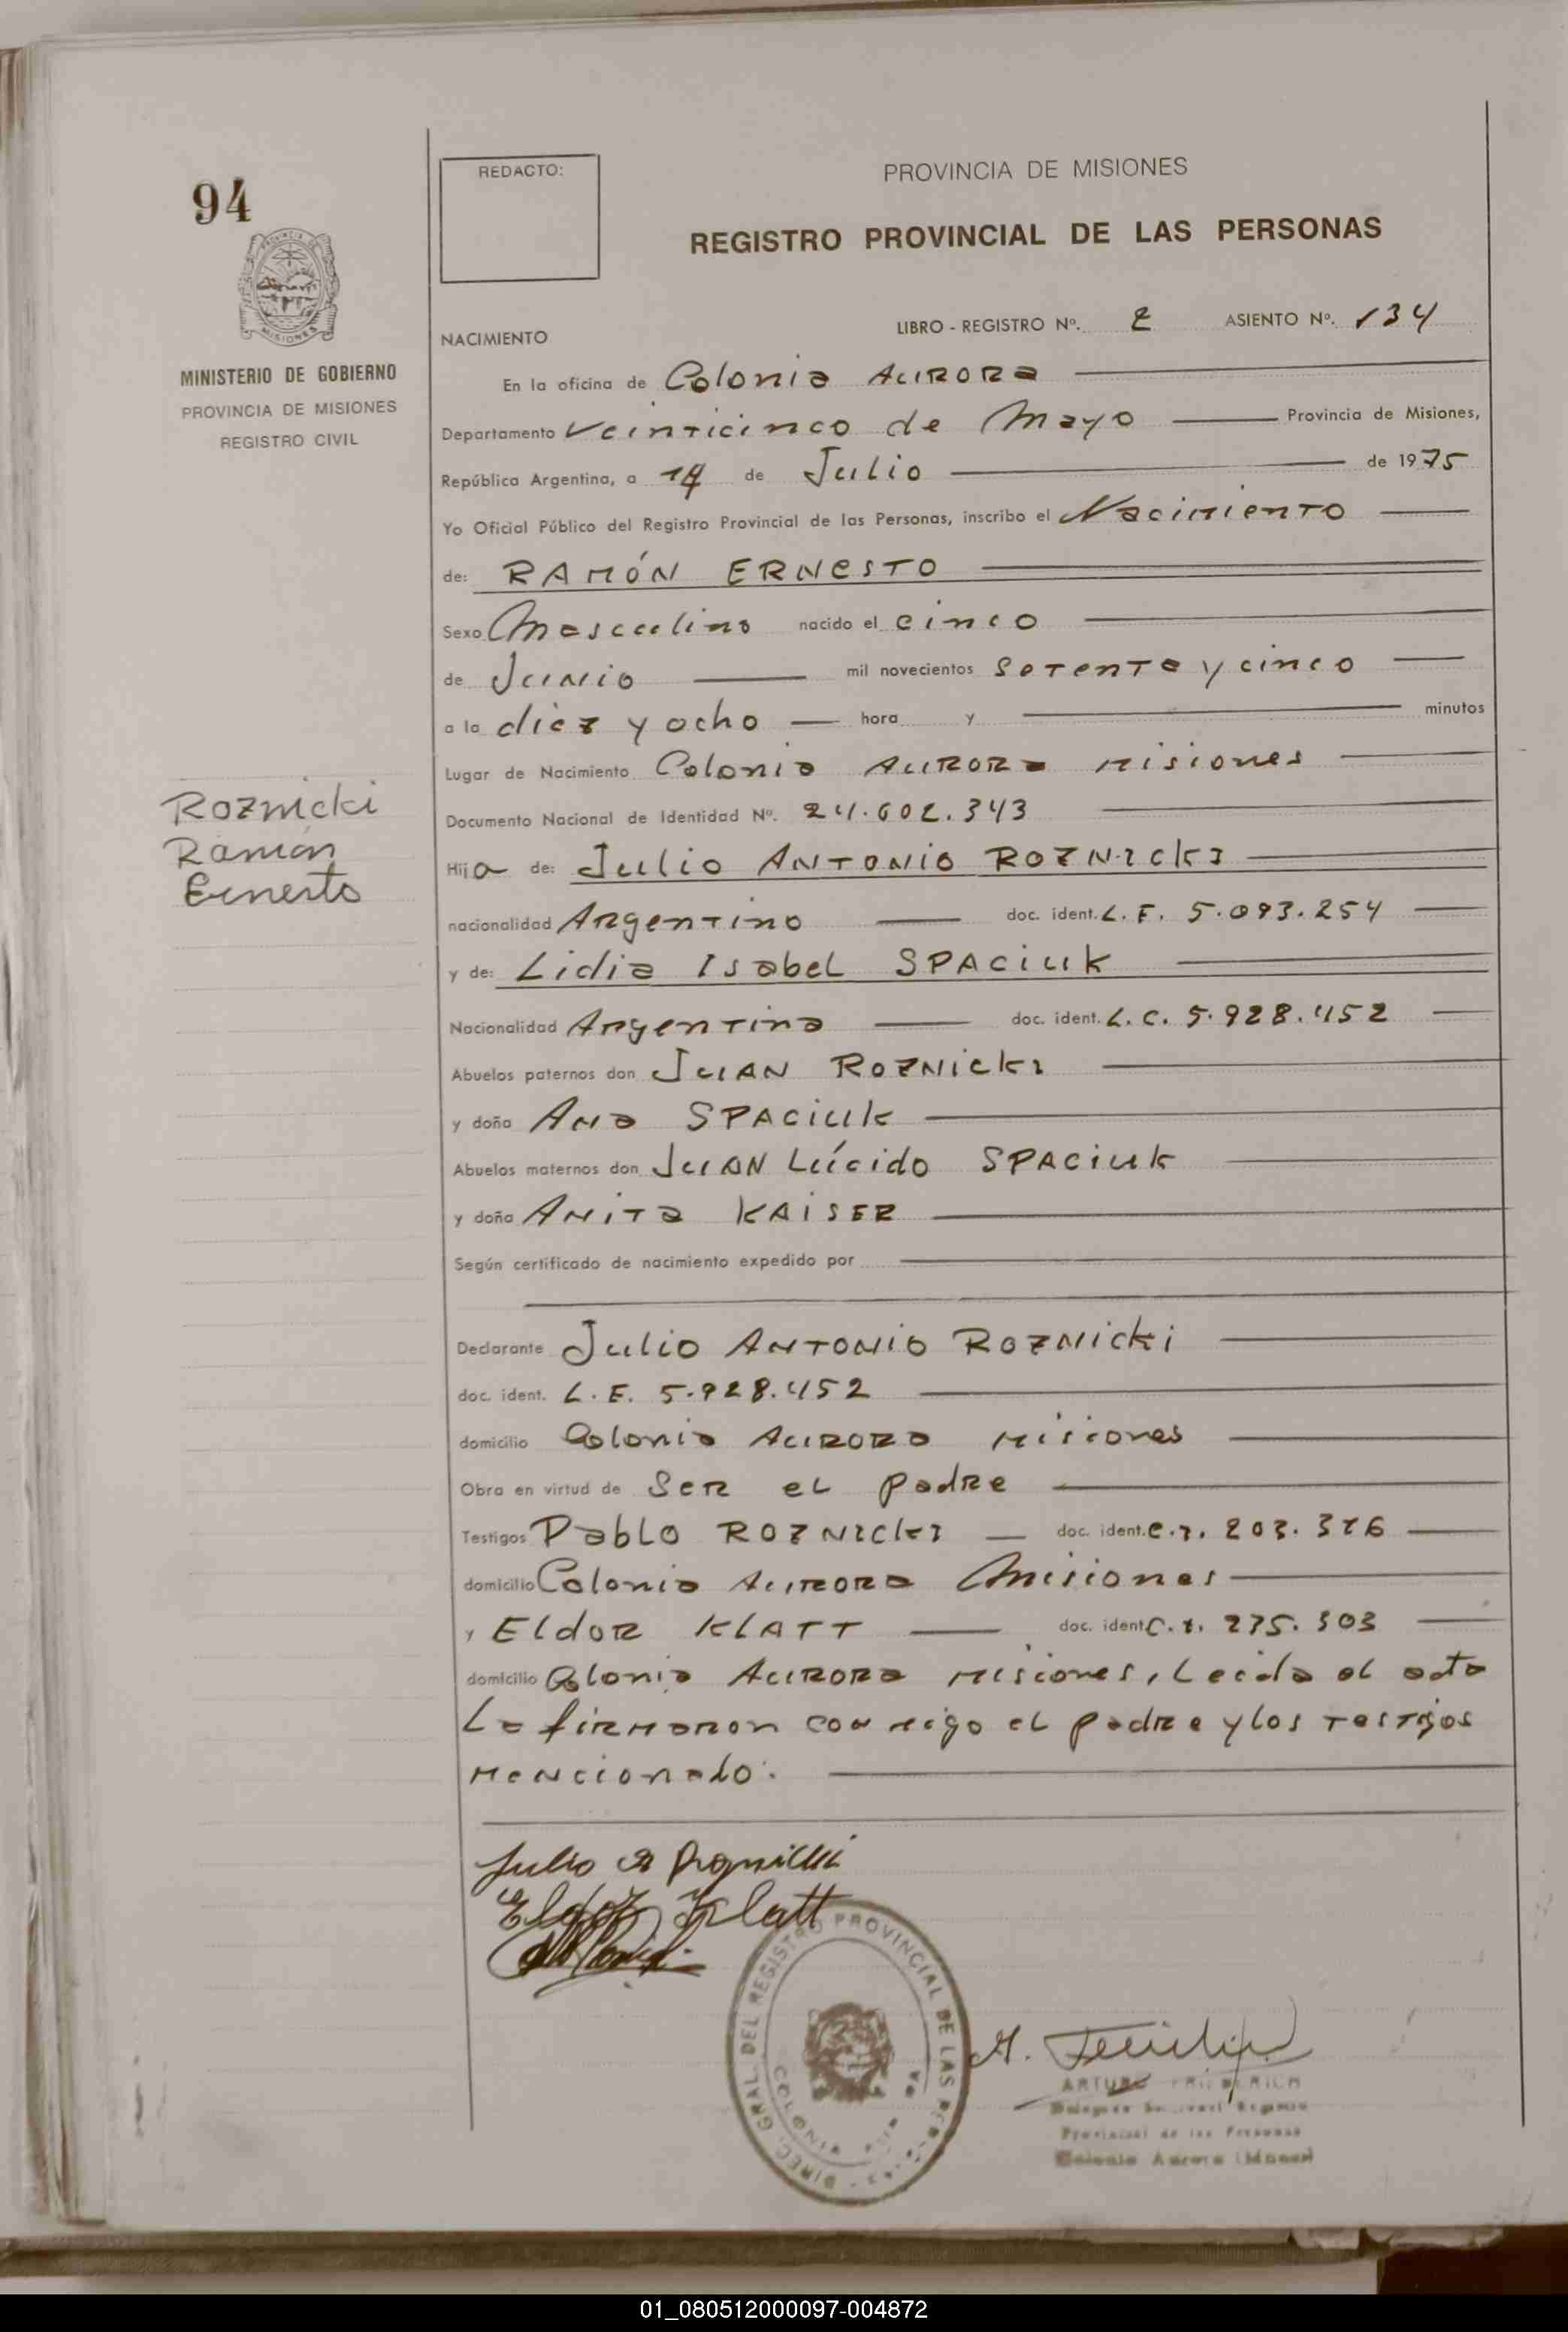 94
REDACTO:
PROVINCIA DE MISIONES
REGISTRO PROVINCIAL DE LAS PERSONAS
MINISTERIO DE GOBIERNO
PROVINCIA DE MISIONES
REGISTRO CIVIL
NACIMIENTO
LIBRO - REGISTRO Nº. 2 ASIENTO Nº. 134
En la oficina de Colonia AURORA
Departamento Veinticinco de Mayo Provincia de Misiones,
República Argentina, a de Julio de 1975
Yo Oficial Público del Registro Provincial de las Personas, inscribo el Nacimiento
de: RAMÓN ERNESTO
Sexo Masculino nacido el cinco
de Junio mil novecientos setenta y cinco
a la diez y ocho hora y minutos
Lugar de Nacimiento Colonia AURORA Misiones
Documento Nacional de Identidad Nº. 24.602.343
Roznicki
Ramón
Ernesto
Hijo de: Julio ANTONIO ROZNICKI
nacionalidad Argentino doc. ident. L. E. 5.093.254
y de: Lidia Isabel SPACIUK
Nacionalidad Argentina doc. ident. L. C. 5.928.452
Abuelos paternos don JUAN ROZNICKI
y doña Ana SPACIUK
Abuelos maternos don JUAN Lúcido SPACIUK
y doña ANITA KAISER
Según certificado de nacimiento expedido por
Declarante Julio ANTONIO ROZNICKI
doc. ident. L. E. 5.928.452
domicilio Colonia AURORA Misiones
Obra en virtud de Ser el padre
Testigos Pablo ROZNICKI doc. ident. C. I. 203.376
domicilio Colonia AURORA Misiones
y ELDOR KLATT doc. ident. C. I. 275.303
domicilio Colonia AURORA Misiones, Leida el acta
La firmaron conmigo el padre y los testigos
mencionado.
Julio A Roznicki
Eldor Klatt
DIREC. GRAL. DEL REGISTRO PROVINCIAL DE LAS
COLONIA
ARTURO FRIEDERICH
Provincial de las Personas
Colonia Aurora
01_080512000097-004872